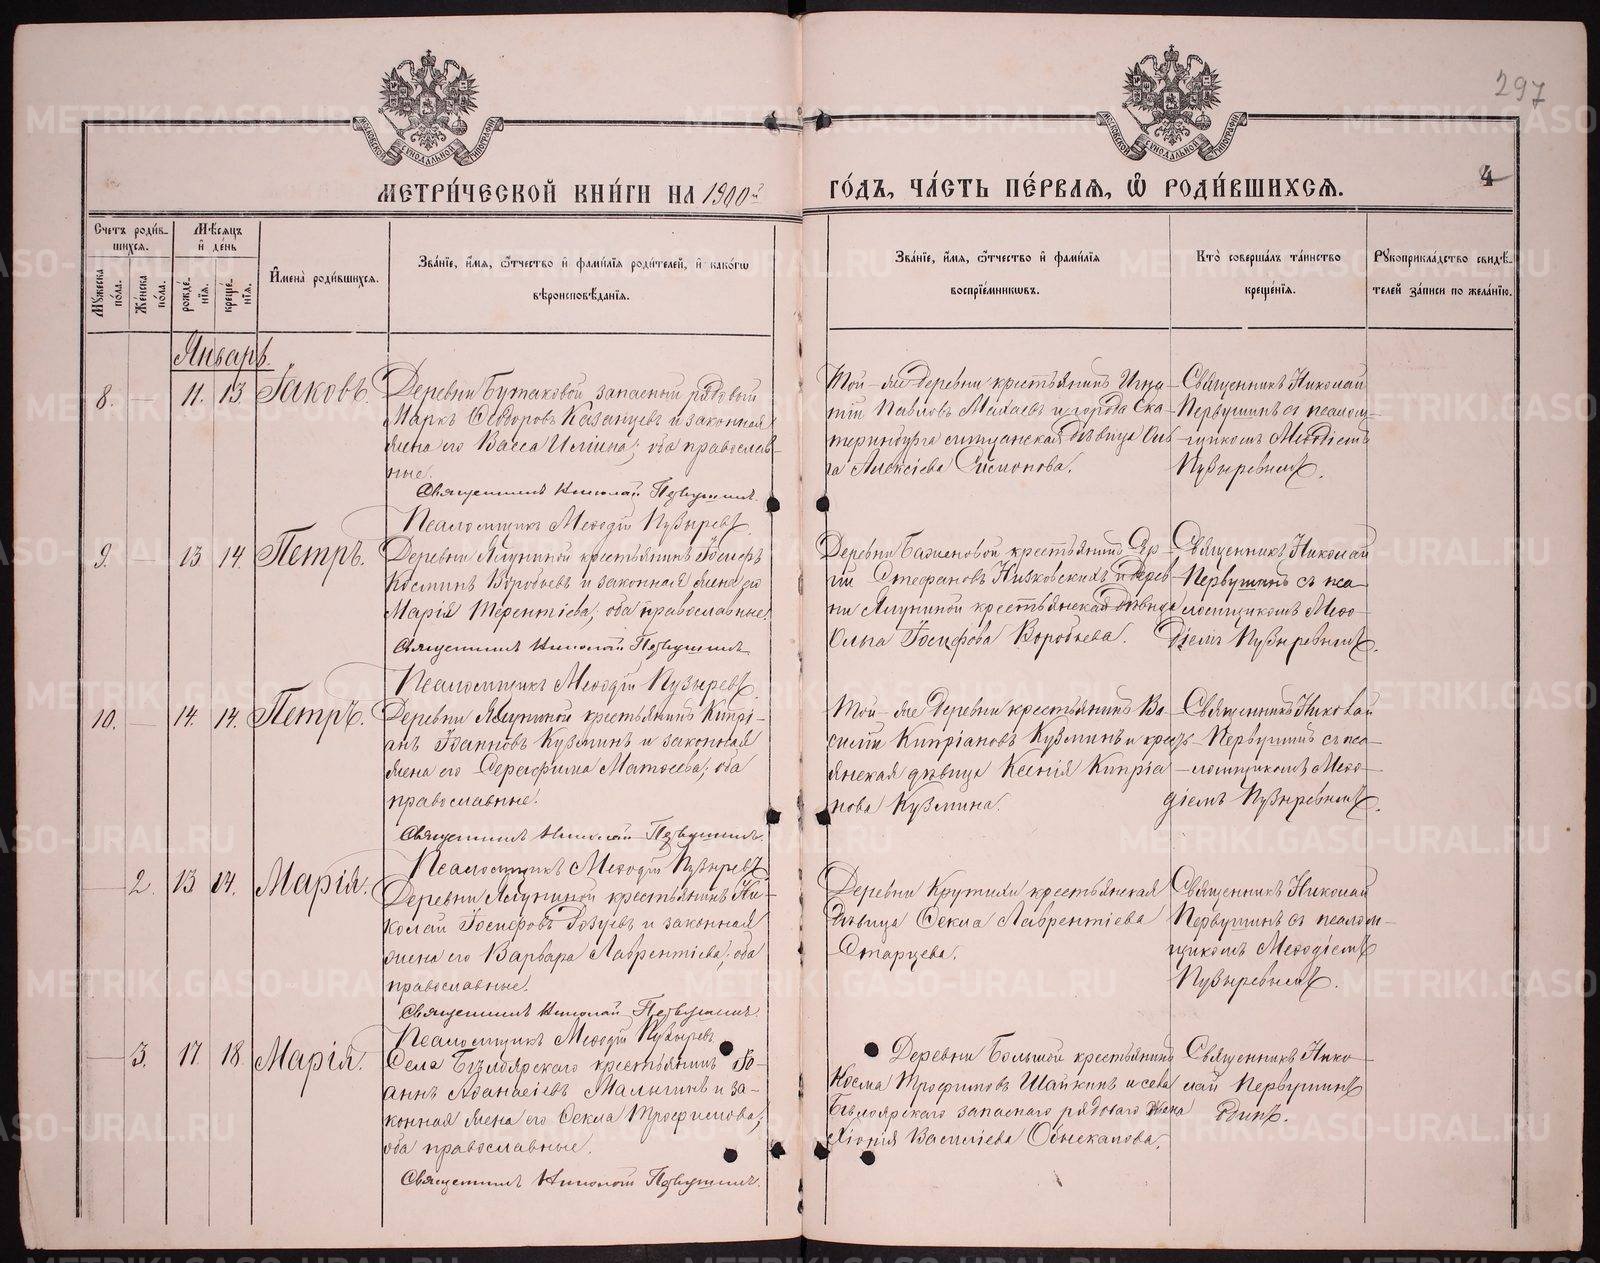 297
4
МОСКОВСКОЙ СѴНОДАЛЬНОЙ ТИПОГРАФІИ
МОСКОВСКОЙ СѴНОДАЛЬНОЙ ТИПОГРАФІИ
МЕТРИ́ЧЕСКОЙ КНИ́ГИ НА 1900й
ГО́ДЪ, ЧА́СТЬ ПЕ́РВАЯ, Ѡ РОДИ́ВШИХСЯ.
Счетъ роди́в-
шихся.
Мѣсяцъ
и́ де́нь
Мꙋжеска по́ла.
Же́нска по́ла.
рожде́-
нїя.
креще́-
нїя.
И҆мена̀ роди́вшихся.
Зва́нїе, и҆́мя, ѻ҆́тчество и҆ фами́лїя роди́телей, и҆ како́гѡ
вѣроисповѣ́данїя.
Зва́нїе, и҆́мя, ѻ҆́тчество и҆ фами́лїя
воспрїе́мниковъ.
Кто̀ соверша́лъ та́инство
креще́нїя.
Рꙋкоприкла́дство свидѣ́-
телей за́писи по жела́нїю.
Январь.
8. — 11. 13. Іаковъ.
Деревни Бутаковой запасный рядовый
Маркъ Ѳеодоровъ Казанцевъ и законная
жена его Васса Ильина; оба православ-
ные.
Священникъ Николай Первушинъ.
Псаломщикъ Меѳодій Пузыревъ.
Той-же деревни крестьянинъ Игна-
тій Павловъ и города Ека-
теринбурга мѣщанская дѣвица Оль-
га Алексіева Симонова.
Священникъ Николай
Первушинъ съ псалом-
щикомъ Меѳодіемъ
Пузыревымъ.
9. — 13 14. Петръ.
Деревни Ялуниной крестьянинъ Іосифъ
Косминъ Воробьевъ и законная жена его
Марія Терентіева; оба православные.
Священникъ Николай Первушинъ
Псаломщикъ Меѳодій Пузыревъ.
Деревни Баженовой крестьянинъ Сер-
гій Стефановъ Низковскихъ и дерев-
ни Ялуниной крестьянская дѣвица
Ольга Іосифова Воробьева.
Священникъ Николай
Первушинъ съ пса-
ломщикомъ Меѳо-
діемъ Пузыревымъ.
10. — 14. 14. Петръ.
Деревни Ялуниной крестьянинъ Кипрі-
анъ Іоанновъ Кузминъ и законная
жена его Серафима Матѳеева; оба
православные.
Священникъ Николай Первушинъ.
Псаломщикъ Меѳодій Пузыревъ
Той-же деревни крестьянинъ Ва-
силій Кипріановъ Кузминъ и кресть-
янская дѣвица Ксенія Кипріа-
нова Кузмина.
Священникъ Николай
Первушинъ съ пса-
ломщикомъ Меѳо-
діемъ Пузыревымъ.
— 2. 13 14. Марія.
Деревни Ялуниной крестьянинъ Ни-
колай Іосифовъ и законная
жена его Варвара Лаврентіева; оба
православные.
Священникъ Николай Первушинъ.
Псаломщикъ Меѳодій Пузыревъ
Деревни Крутихи крестьянская
дѣвица Ѳекла Лаврентіева
Старцева.
Священникъ Николай
Первушинъ съ псалом-
щикомъ Меѳодіемъ
Пузыревымъ.
— 3. 17. 18. Марія.
Села Бѣлоярскаго крестьянинъ Іо-
аннъ Аѳанасіевъ Малыгинъ и за-
конная жена его Ѳекла Трофимова;
оба православные.
Священникъ Николай Первушинъ.
Деревни Большой крестьянинъ
Косма Трофимовъ Шайкинъ и села
Бѣлоярскаго запаснаго рядоваго жена
Хіонія Василіева Обыскалова.
Священникъ Нико-
лай Первушинъ
одинъ.
METRIKI.GASO-URAL.RU